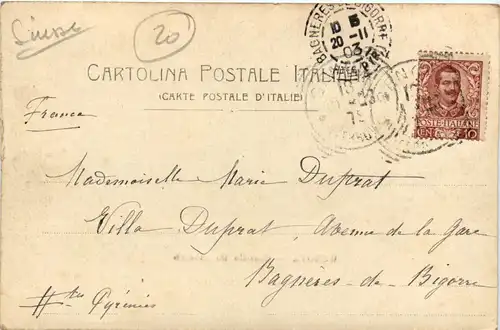 Suisse
20
BAGNÈRES DE BIGORRE
10 15
20 -11
03
CARTOLINA POSTALE ITALIANA
(CARTE POSTALE D'ITALIE)
POSTE·ITALIANE
CEN 10
France
Mademoiselle Marie Duprat
Villa Duprat, Avenue de la Gare
Bagnères-de-Bigorre
Htes Pyrénées